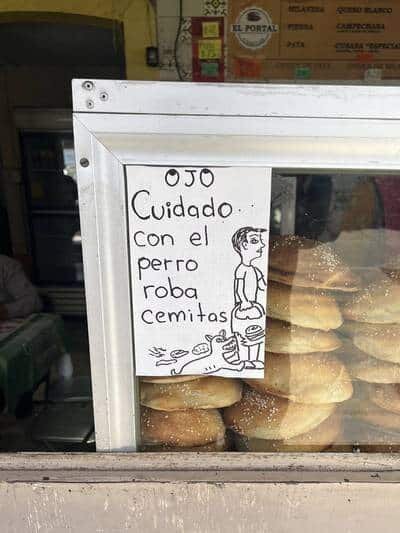 EL PORTAL
MILANESA QUESO BLANCO
PIERNA CAMPECHANA
PATA CUBANA "ESPECIAL
OJO
Cuidado
con el
perro
roba
cemitas